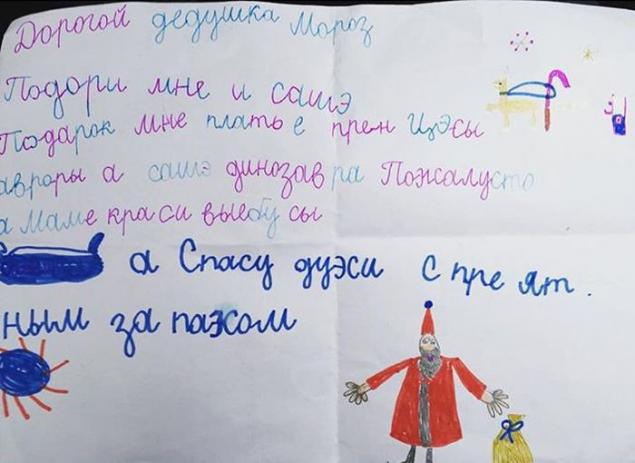 Дорогой дедушка Мороз
Подори мне и сашэ
Подарок мне платье прен Цэсы
авроры а сашэ динозавра Пожалусто
а Маме краси выебу сы
а Спасу дуэси с пре ят.
ным за пахом